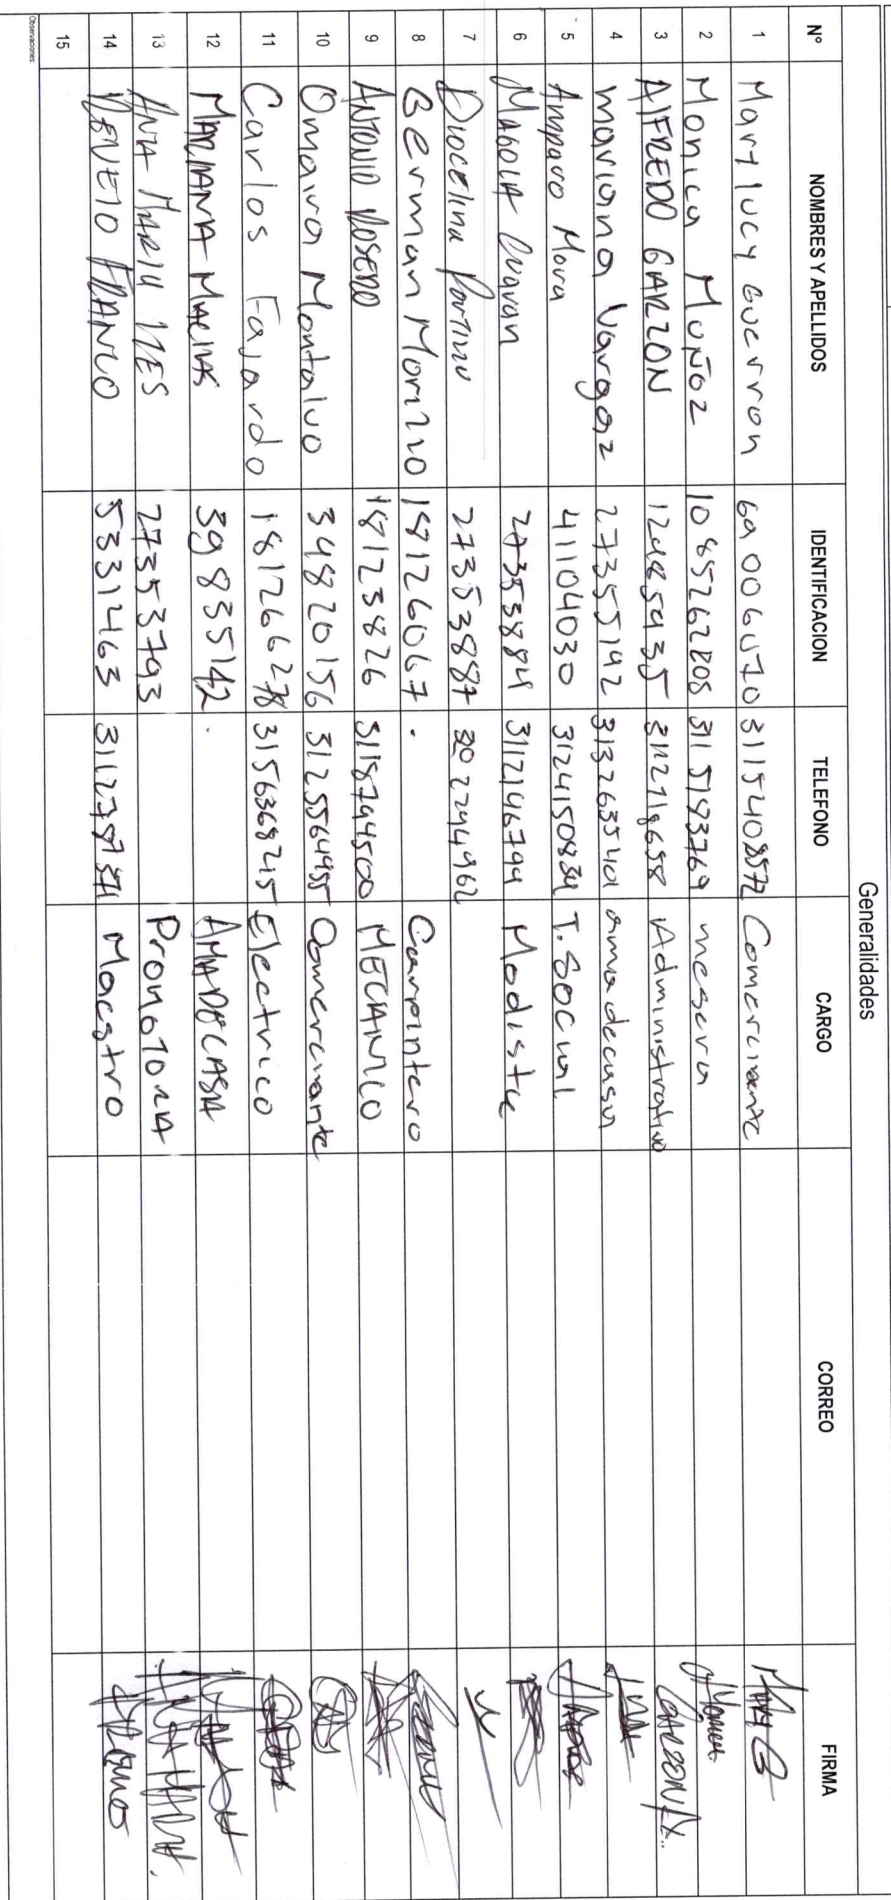 Generalidades
N° NOMBRES Y APELLIDOS IDENTIFICACION TELEFONO CARGO CORREO FIRMA
1 Mary lucy Guerron 690060570 3115408572 Comerciante
2 Monica Muñoz 1085262808 3115183769 mesera
3 AlFREDO GARZON Administrativo GARZON
4 mariana Vargaz 27355192 3132635401 ama de casa
5 Amparo Mora 41104030 3124150834 T. Social
6 MAGOLA 27353884 3112146794 Modista
7 Diocelina 27353887 3022294962
8 German 18126067 . Carpintero
9 ANTONIO ROSERO 18123826 3118794500 MECANICO
10 Omaira Montalvo 34820156 3125564955 Comerciante
11 Carlos Fajardo 181266278 3156368245 Electrico
12 MARIANA MACIAS 39835142 . AMA DE CASA
13 ANA MARIA 27353793 PromoTORA
14 FRANCO 5331463 3112787871 Maestro
15
Observaciones: